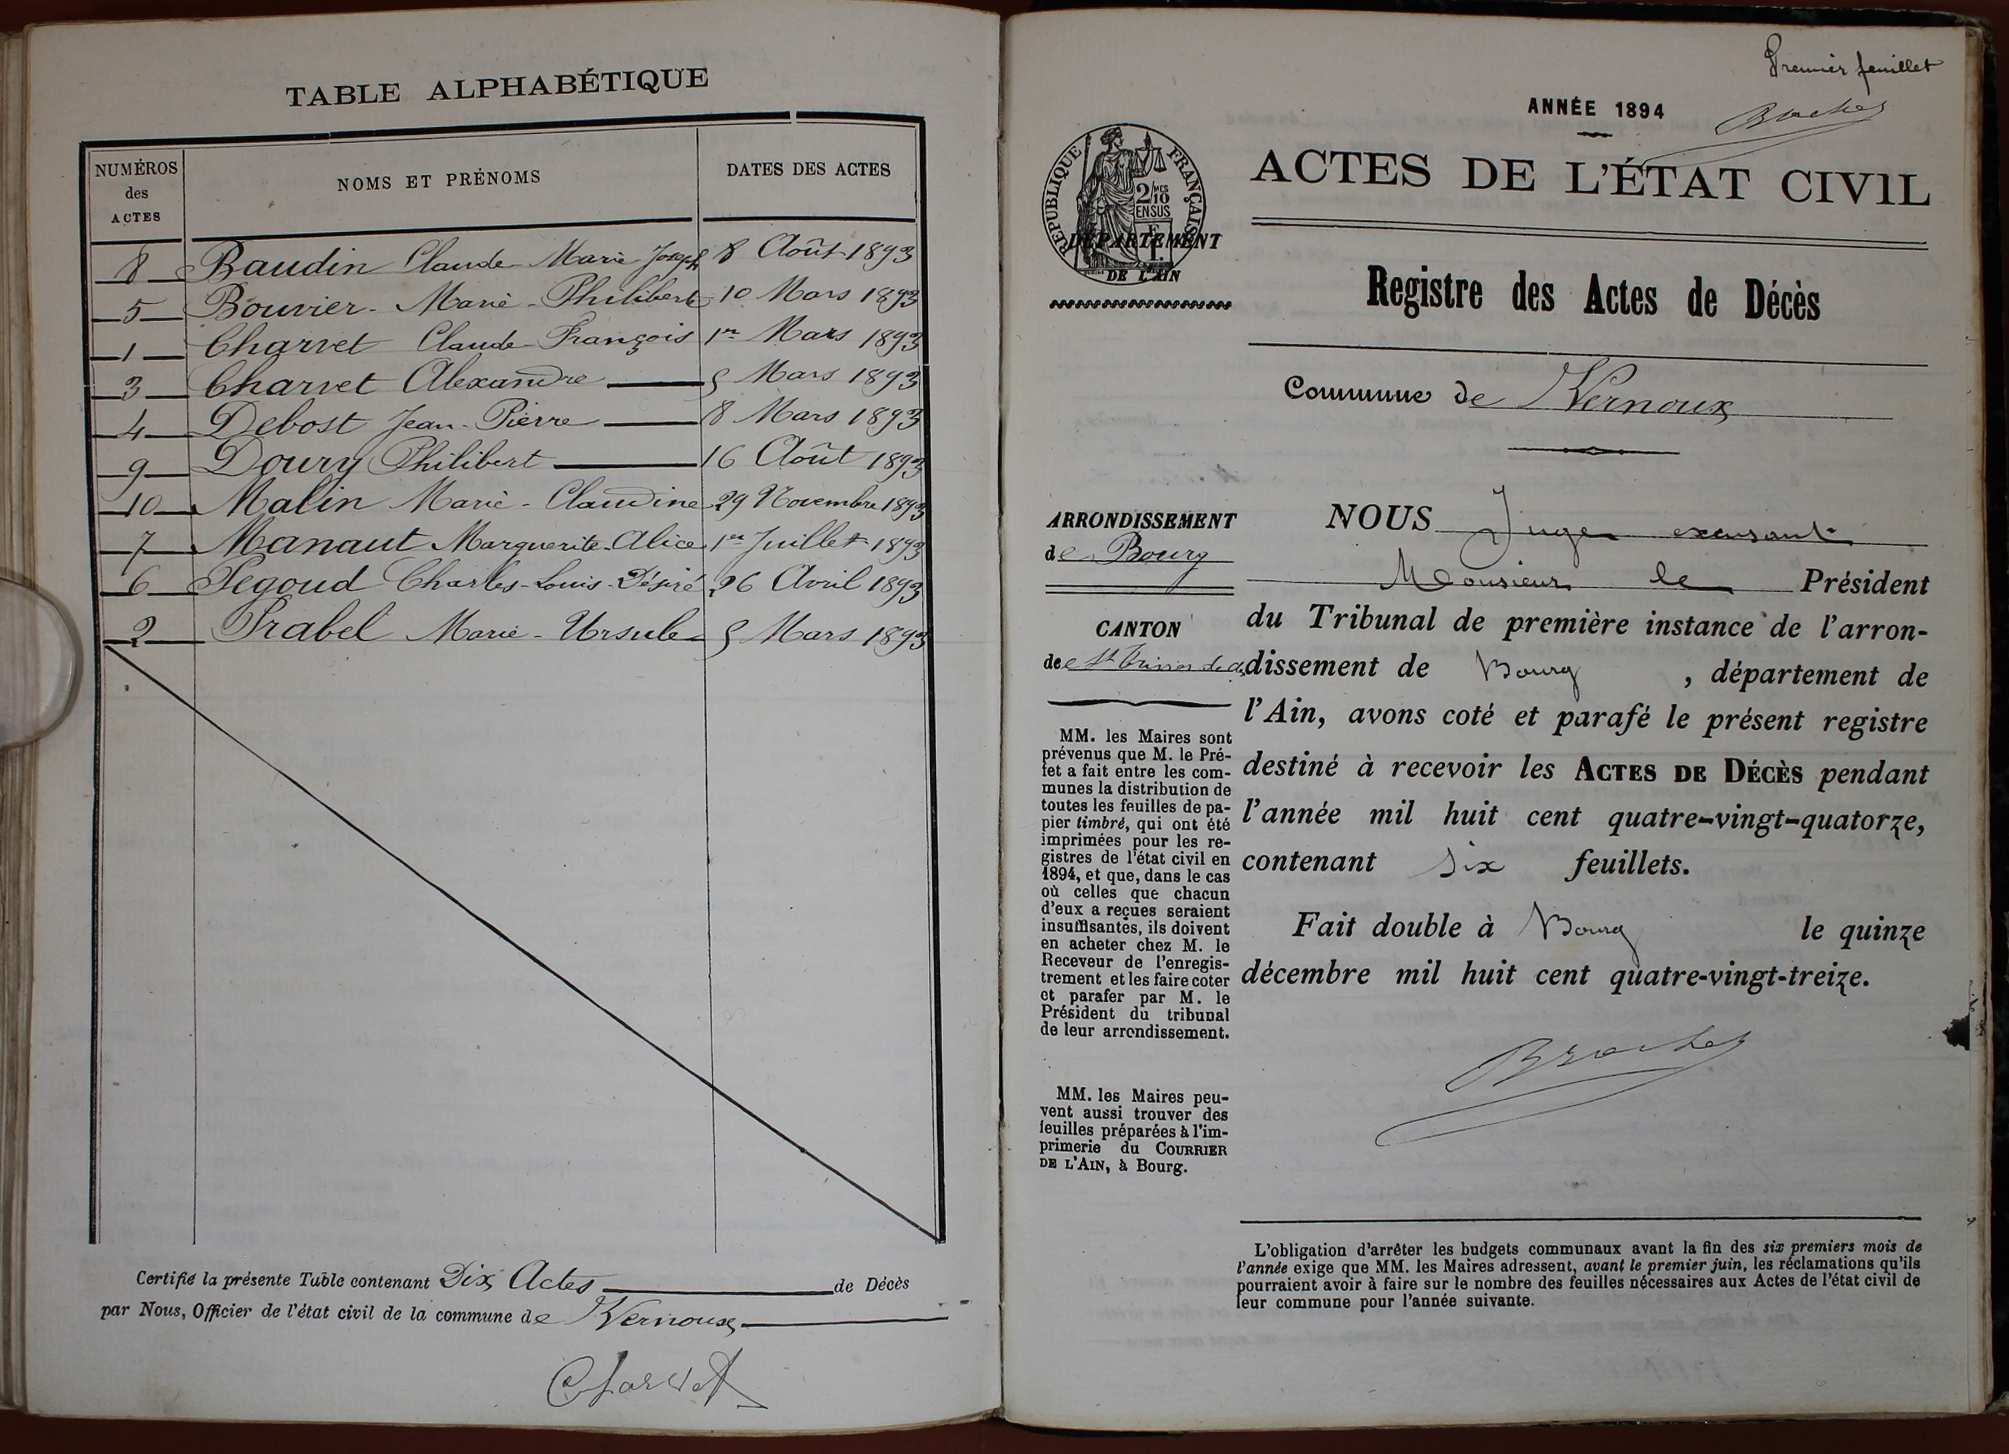 TABLE ALPHABÉTIQUE
NUMÉROS des ACTES NOMS ET PRÉNOMS DATES DES ACTES
8 Baudin Claude Marie Joseph 8 Août 1893
5 Bouvier - Marie - Philibert 10 Mars 1893
1 Charvet Claude François 1er Mars 1893
3 Charvet Alexandre 5 Mars 1893
4 Debost Jean-Pierre 8 Mars 1893
9 Doury Philibert 16 Août 1893
10 Malin Marie - Claudine 29 Novembre 1893
7 Manaut Marguerite-Alice 1er Juillet 1893
6 Pegoud Charles-Louis-Désiré 26 Avril 1893
2 Prabel Marie - Ursule 5 Mars 1893
Certifié la présente Table contenant Dix Actes de Décès
par Nous, Officier de l'état civil de la commune de Vernoux
Charvet
Premier feuillet
ANNÉE 1894
ACTES DE L'ÉTAT CIVIL
RÉPUBLIQUE FRANÇAISE
2/10 EN SUS
DÉPARTEMENT
DE L'AIN
Registre des Actes de Décès
Commune de Vernoux
ARRONDISSEMENT
de Bourg
CANTON
de St Trivier de
MM. les Maires sont
prévenus que M. le Pré-
fet a fait entre les com-
munes la distribution de
toutes les feuilles de pa-
pier timbré, qui ont été
imprimées pour les re-
gistres de l'état civil en
1894, et que, dans le cas
où celles que chacun
d'eux a reçues seraient
insuffisantes, ils doivent
en acheter chez M. le
Receveur de l'enregis-
trement et les faire coter
et parafer par M. le
Président du tribunal
de leur arrondissement.
MM. les Maires peu-
vent aussi trouver des
feuilles préparées à l'im-
primerie du COURRIER
DE L'AIN, à Bourg.
NOUS Juge excusant
Monsieur le Président
du Tribunal de première instance de l'arron-
dissement de Bourg , département de
l'Ain, avons coté et parafé le présent registre
destiné à recevoir les ACTES DE DÉCÈS pendant
l'année mil huit cent quatre-vingt-quatorze,
contenant six feuillets.
Fait double à Bourg le quinze
décembre mil huit cent quatre-vingt-treize.
L'obligation d'arrêter les budgets communaux avant la fin des six premiers mois de
l'année exige que MM. les Maires adressent, avant le premier juin, les réclamations qu'ils
pourraient avoir à faire sur le nombre des feuilles nécessaires aux Actes de l'état civil de
leur commune pour l'année suivante.